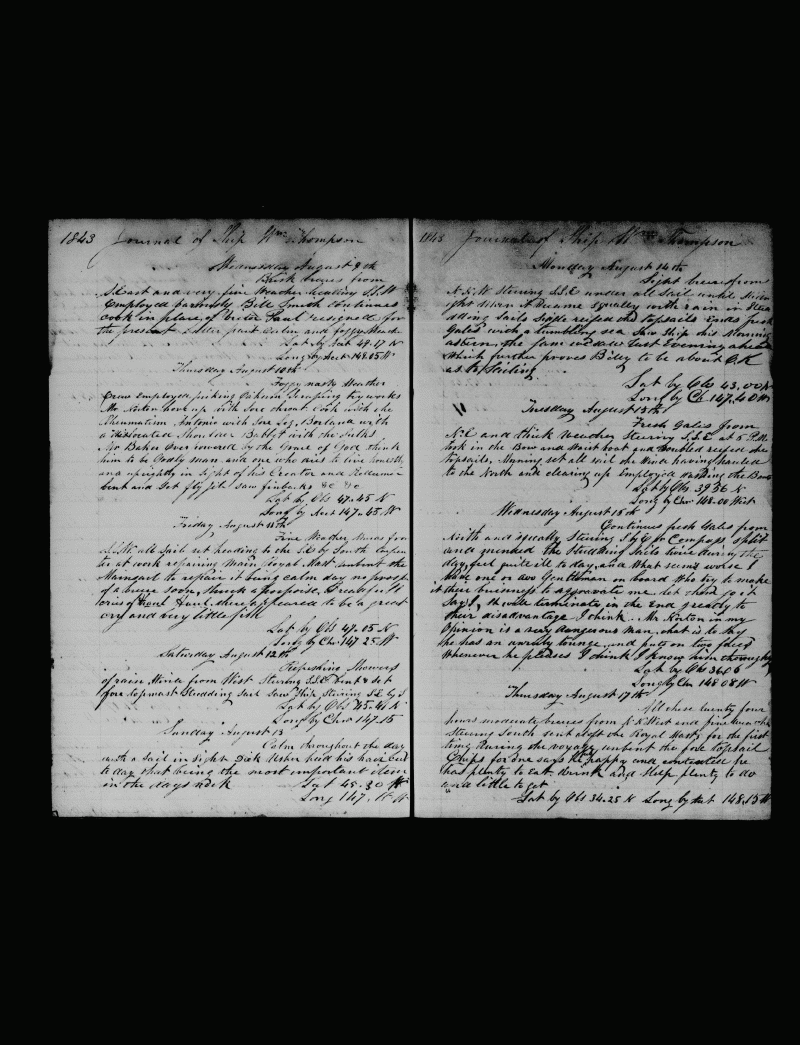 1843 Journal of Ship Wm Thompson
Wednesday August 9th
Brisk breezes from
S. East and very fine Weather heading S.S.W
Employed variously Bill Smith continues
cook in place of Peter Paul resigned for
the present Latter part Calm and foggy Weather
Lat by Acct 49.17 N
Long by Acct 148.05 W
Thursday August 10th
Foggy nasty Weather
Crew Employed picking Oakum Scraping try works
Mr Norton hove up with Sore throat Cook with the
Rheumatism Antonio with Sore Leg, Borland with
a dislocated Shoulder with the Sulks
Mr Baker Over powered by the Grace of God think
him to be Godly man and one who tries to live honestly
and uprightly in Sight of his Creator and Redeemer
bent and Set fly jib Saw finbacks &c &c
Lat by Obs 47.45 N
Long by Acct 147.45 W
Friday August 11th
Fine Weather Airs from
all Sail set heading to the SE by South
at work repairing Main Royal Mast unbent the
Mainsail to repair it being calm day no prospect
of a breeze soon, Struck a porpoise, Breakfast
cries of Haul Haul, there appeared to be a great
cry and very little fish
Lat by Obs 47.05 N
Long by Chr 147.25 W
Saturday August 12th
Refreshing Showers
of rain Wind from West Steering S.S.E bent & set
fore topmast Studding Sail Saw Ship Steering S.E by S
Lat by Obs 45.41 N
Long by Chr 147.15
Sunday August 13
Calm throughout the day
with a Sail in Sight Dick Usher had his hair Cut
to day that being the most important
in the days work Lat 45.30 N
Long 147. W
1843 Journal of Ship Wm Thompson
Monday August 14th
Light breeze from
N.N.W Steering S.S.E under all Sail until
When it Became Squally with rain in
Sails Single reefed the topsails Ends fresh
Gales with a tumbling sea Saw Ship this Morning
astern, the Same we saw last Evening ahead
Which further proves Billy to be about O.K
at Sailing
Lat by Obs 43.00 N
Long by Ch 147.40 W
Tuesday August 15th
Fresh Gales from
N.E and thick Weather Steering S.S.E at 5 P.M.
took in the Bow and Waist boat and Doubled reefed the
topsails, Morning set all sail the Wind having hauled
to the North and clearing up Employed washing the Bone
Lat by Obs 39.56 N
Long by Chr 148.00 West
Wednesday August 16th
Continues fresh Gales from
North and squally Steering S by E by Compass split
and mended the Studding Sails twice during the
day, feel quite ill to day, and What seems worse I
have one or two Gentleman on board Who try to make
it their business to aggravate me let them go it
Say I, it will terminate in the End greatly to
their disadvantage I think. Mr Norton in my
Opinion is a very dangerous man, that is to say
he has an unruly tounge, and puts on two faces
Whenever he pleases I think I know him thoroughly
Lat by Obs 36.06
Long by Chr 148.08 W
Thursday August 17th
All these twenty four
hours moderate breezes from N.N.West and fine Weather
Steering South sent aloft the Royal Masts for the first
time during the voyage unbent the fore topsail
Chips for one says he happy and contented he
has plenty to Eat, drink and Sleep plenty to do
and little to get
Lat by Obs 34.25 N Long by Acct 148.15 W